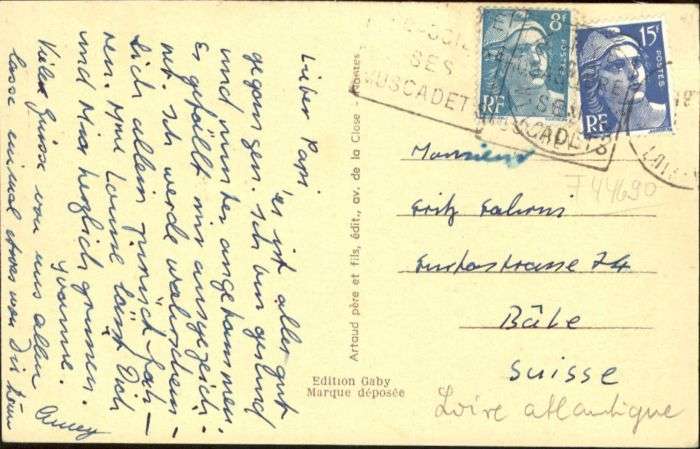 Lieber Papi
es ist alles gut
gegangen. Ich bin gesund
und munter angekommen.
Es gefällt mir ausgezeich-
net. Ich werde wahrschein-
lich allein zurück fah-
ren. Mme Louise lässt Dich
und Mimi herzlich grüssen.
Yvonne.
Viele Grüsse von uns allen
lasse einmal etwas von Dir hören
Edition Gaby
Marque déposée
Artaud père et fils, édit., av. de la Close - Nantes
SES
MUSCADETS
SES
MUSCADETS
8F
POSTES
RF
15F
POSTES
RF
Monsieur
Fritz
Furkastrasse 74
Bâle
Suisse
744690
Loire atlantique